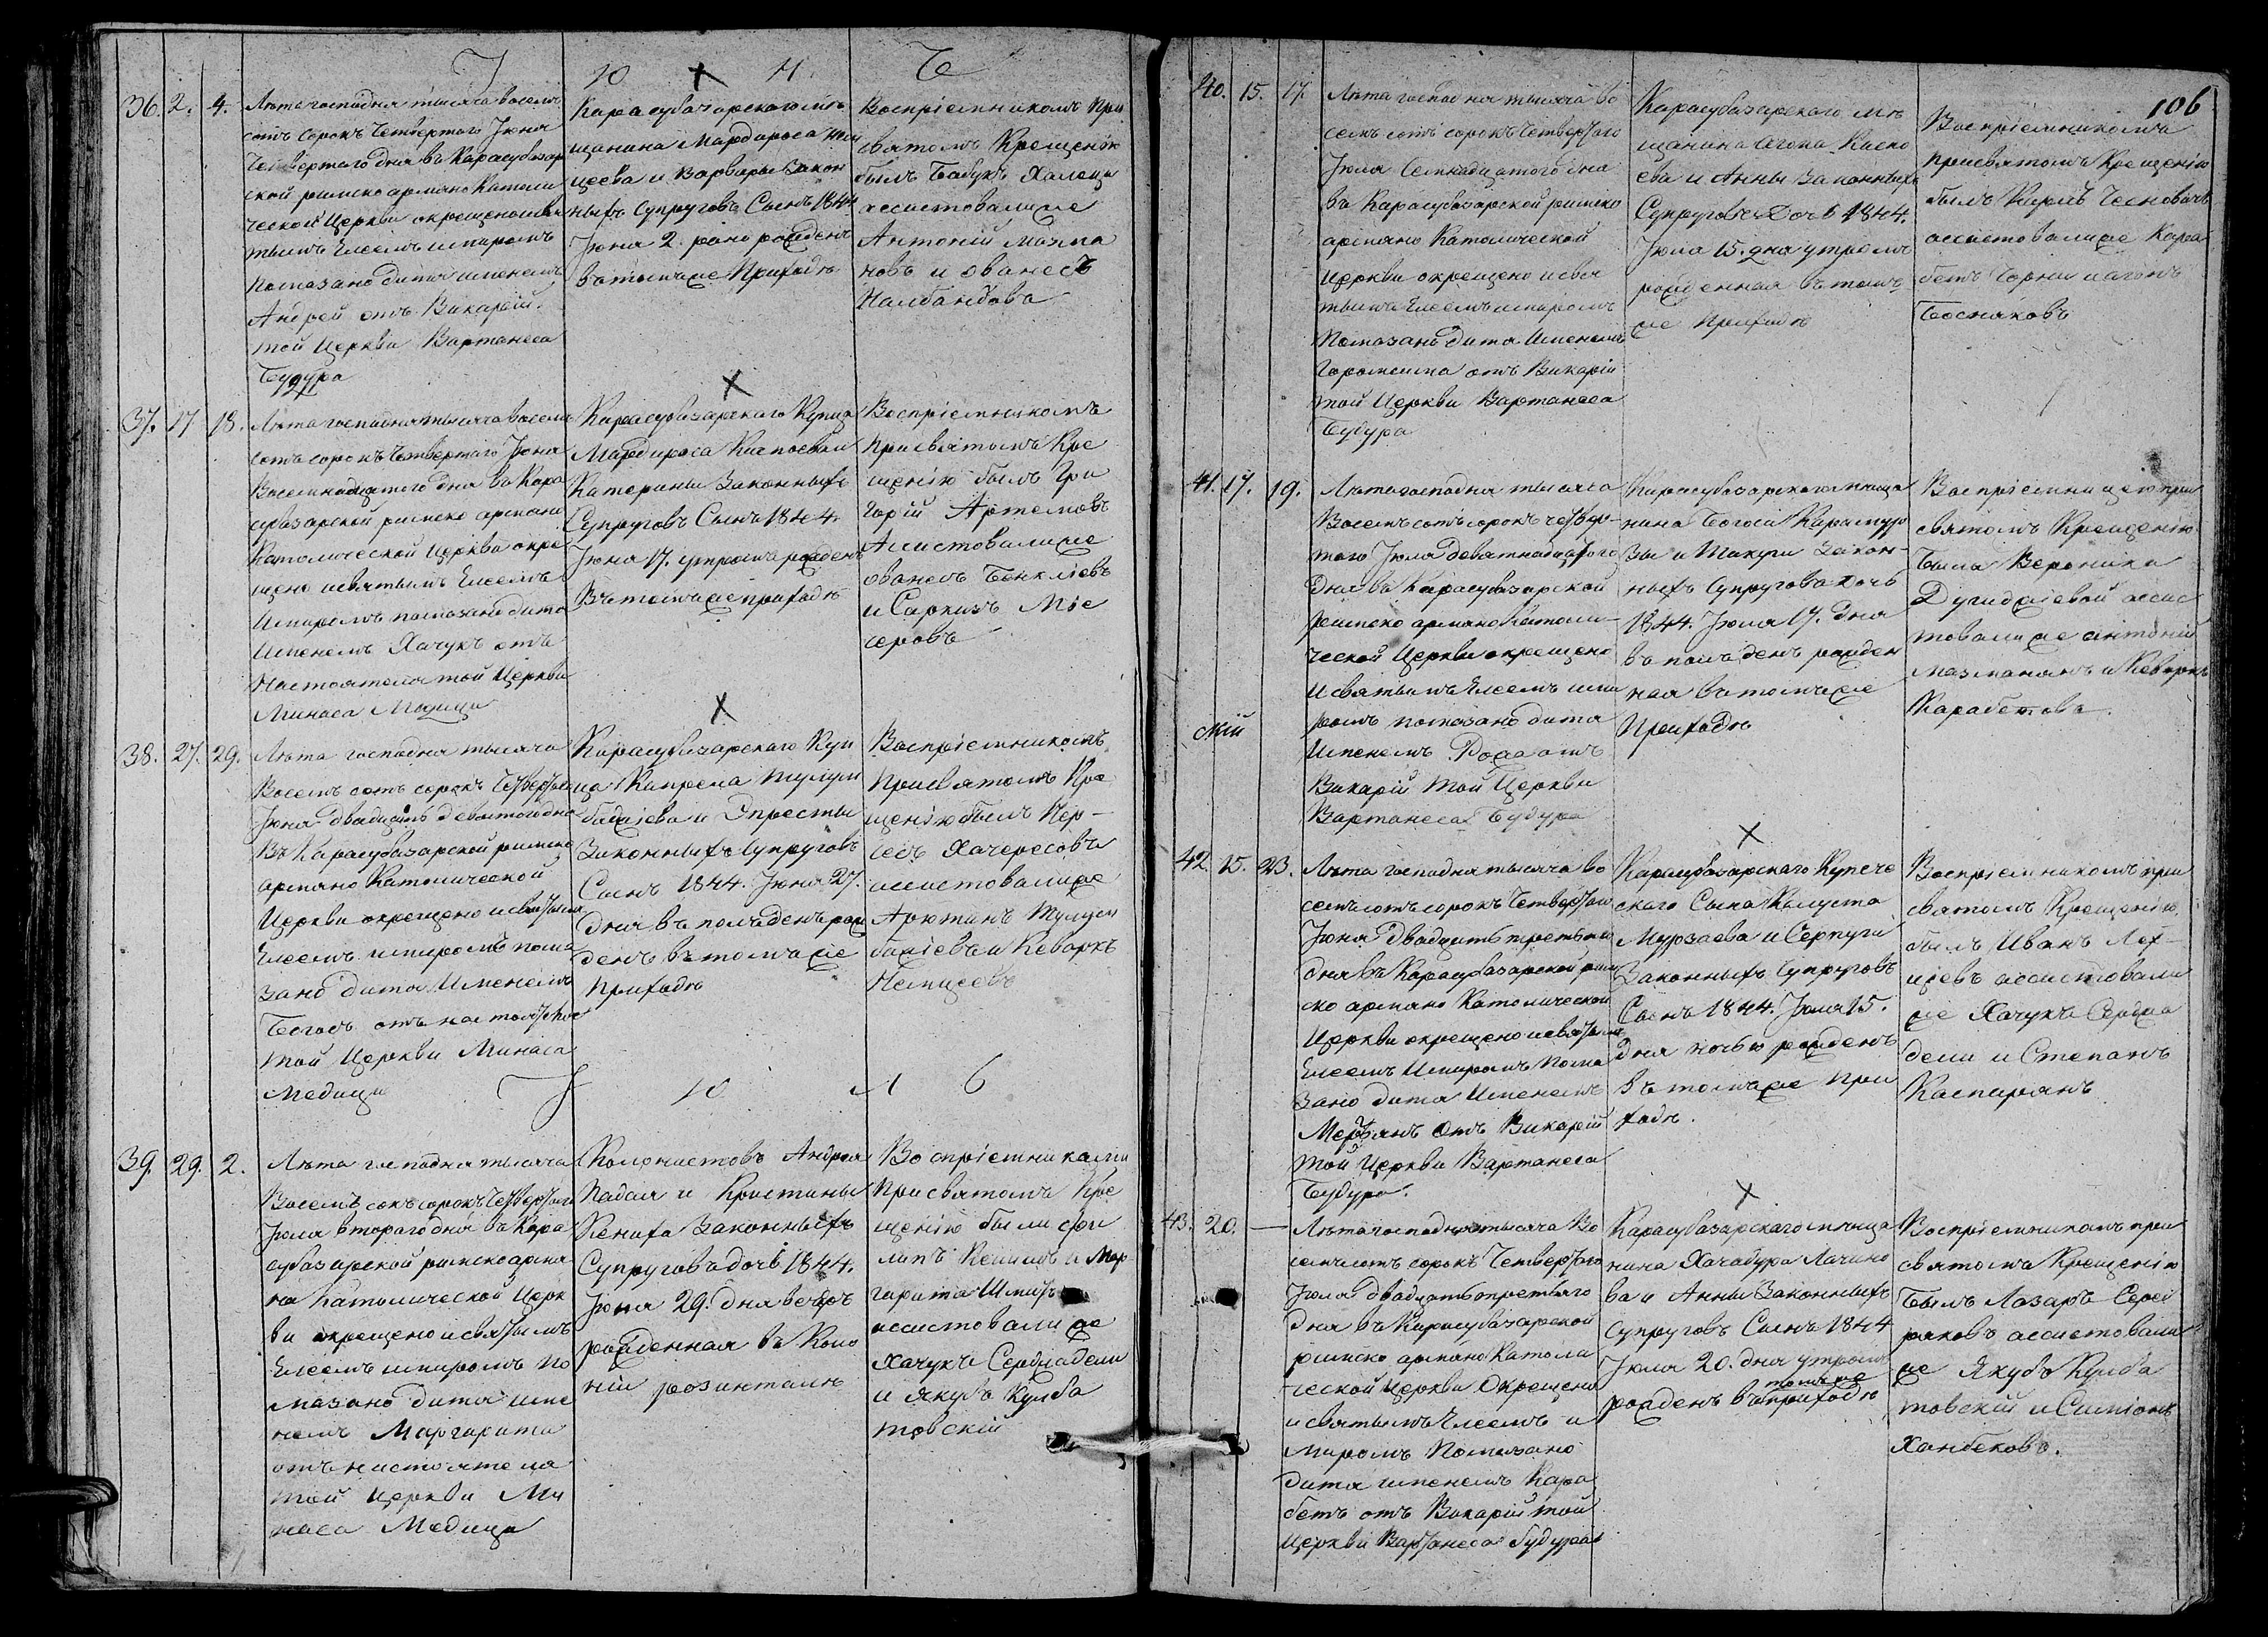 І Ю Н Ь
36. 2. 4.
Лѣта господня тысяча восемь
сотъ сорокъ Четвертаго Іюня
Четвертаго дня въ Карасубазар
ской римско армяно Католи
ческой Церкви окрещено и свя
тымъ Елеемъ и миромъ
помазано дитя именемъ
Андрей отъ Викарій
той Церкви Вартанеса
Будура
Карасубазарскаго мѣ
щанина Мардироса
цеева и Варвары Закон
ныхъ Супруговъ Сынъ 1844
Іюня 2. рано рожденъ
въ томъ же Приходѣ
Воспріемникомъ При
святомъ Крещенію
былъ Бабукъ Халеци
ассистовали же
Антоній Мазма
новъ и Ованесъ
Налбандова
37. 17 18.
Лѣта господня тысяча восемь
сотъ сорокъ Четвертаго Іюня
Восемнадцатого дня въ Кара
субазарской римско армяно
Католической Церкви окре
щено и святымъ Елеемъ
и миромъ помазано дитя
именемъ Хачукъ отъ
Настоятеля той Церкви
Минаса Медици
Карасубазарскаго Купца
Мардироса Киспоева и
Катерины Законныхъ
Супруговъ Сынъ 1844.
Іюня 17. утромъ рожденъ
Въ томъ же приходѣ
Воспріемникомъ
при святомъ Кре
щенію былъ Гри
горій Артемовъ
Ассистовали же
Ованесъ Бенклiевъ
и Саркизъ Мис
серовъ
38. 27. 29.
Лѣта господня тысяча
Восемь сотъ сорокъ Четвертаго
Іюня двадцать девятого дня
Въ Карасубазарской римско
армяно Католической
Церкви окрещено и святымъ
Елеемъ и миромъ пома
зано дитя Именемъ
Богосъ отъ настоятеля
той Церкви Минаса
Медици
Карасубазарскаго Куп
ца Капрела Тулум
баджіева и Эпресты
Законныхъ Супруговъ
Сынъ 1844. Іюня 27.
дня въ полъ день рож
денъ въ томъ же
приходѣ
Воспріемникомъ
При святомъ Кре
щенію былъ Нер-
сесъ Хачересовъ
ассистовали же
Арютинъ Тулум
баджіевъ и Кеваркъ
Немцеевъ
І Ю Л Ь
39. 29. 2.
Лѣта господня тысяча
Восемь сотъ сорокъ Четвертаго
Іюля втораго дня въ Кара
субазарской римско армя
но Католической Церк
ви окрещено и святымъ
Елеемъ и миромъ по
мазано дитя име
немъ Маргарита
отъ настоятеля
той Церкви Ми
наса Медици
Колонистовъ Андрея
Падая и Кристины
Кениха Законныхъ
Супруговъ дочь 1844.
Іюня 29. дня вечеръ
рожденная въ Коло
ніи розинталь
Воспріемниками
При святомъ Кре
щенію были Фи
липъ Кениxъ и Мар
гарита Шмитъ
ассистовали же
Хачукъ Серджадели
и Якубъ Кулба
товскій
106
40. 15. 17.
Лѣта господня тысяча во
семь сотъ сорокъ Четвертаго
Іюля Семнадцатого дня
въ Карасубазарской римско
армяно Католической
Церкви окрещено и свя
тымъ Елеемъ и миромъ
Помазано дитя Именемъ
Горомсима отъ Викарій
той Церкви Вартанеса
Будура
Карасубазарскаго мѣ
щанина Агопа Киспо
ева и Анны Законныхъ
Супруговъ Дочь 1844.
Іюля 15. дня утромъ
рожденная въ томъ
же Приходѣ
Воспріемникомъ
При святомъ Крещенію
былъ Киркъ Чесновичъ
ассистовали же Кара
бетъ Чорни и Агопъ
Босняковъ
41. 17. 19.
Лѣта господня тысяча
Восемь сотъ сорокъ четвер-
таго Іюля девятнадцатого
Дня въ Карасубазарской
римско армяно Католи-
ческой Церкви окрещено
и святымъ Елеемъ и ми
ромъ помазано дитя
Именемъ Роза отъ
Викарій той Церкви
Вартанеса Будура
Карасубазарскаго мѣща
нина Богоса Карамурзы
и Такуги Закон-
ныхъ Супруговъ дочь
1844. Іюля 17. Дня
въ полъ день рожден
ная въ томъ же
Приходѣ
Воспріемницею при
святомъ Крещенію
Была Вероника
Дугиджіевой ассис
товали же Антоній
Мазманянъ и Кеваркъ
Карабетова.
42. 15. 23.
Лѣта господня тысяча во
семь сотъ сорокъ Четвертаго
Іюля Двадцать третьяго
дня въ Карасубазарской рим
ско армяно Католической
Церкви окрещено и святымъ
Елеемъ и миромъ Пома
зано дитя Именемъ
отъ Викарій
той Церкви Вартанеса
Будура.
Карасубазарскаго Купече
скаго Сына Калуста
Мурзаева и Серпуги
Законныхъ Супруговъ
Сынъ 1844. Іюля 15.
Дня ночью рожденъ
въ томъ же При
ходѣ.
Воспріемникомъ при
святомъ Крещенію
былъ Иванъ Лех-
цiевъ ассистовали
же Хачукъ Серджа
дели и Степанъ
Каспарянъ
43. 20. —
Лѣта господня тысяча Во
семь сотъ сорокъ Четвертаго
Іюля двадцать третьяго
дня въ Карасубазарской
римско армяно Католи
ческой Церкви Окрещено
и святымъ Елеемъ и
миромъ Помазано
дитя именемъ Кара
бетъ отъ Викарій той
Церкви Вартанеса Будура
Карасубазарскаго мѣща
нина Хачадура Лачино
ва и Анны Законныхъ
супруговъ Сынъ 1844
Іюля 20. дня утромъ
рожденъ въ томъ же приходѣ
Воспріемникомъ при
святомъ Крещенію
Былъ Лазаръ Серей
ряковъ ассистовали
же Якубъ Кулба
товскій и Симіонъ
Ханбековъ.